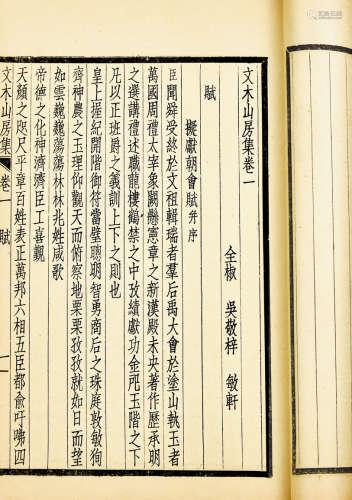 文木山房集卷一
全椒 吳敬梓 敏軒
賦
擬獻朝會賦 并序
臣聞舜受終於文祖輯瑞者羣后禹大會於塗山執玉者
萬國周禮太宰象闕縣憲章之新漢殿未央著作歷承明
之選講禮述職龍樓鶴禁之中孜績獻功金戺玉階之下
凡以正班爵之義訓上下之則也
皇上握紀開階御符當璧聰明智勇商后之珠庭敦敏徇
齊神農之玉理仰觀天而俯察地栗栗孜孜就如日而望
如雲巍巍蕩蕩林林兆姓咸歌
帝德之化神濟濟臣工喜觀
天顏之咫尺平章百姓表正萬邦六相五臣都俞吁咈四
文木山房集 卷一 賦 一